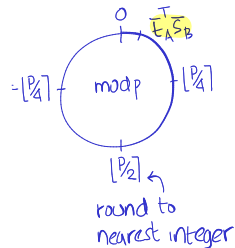 0
E_A^T S_B
-⌊P/4⌉
mod p
⌊P/4⌉
⌊P/2⌉
round to
nearest integer